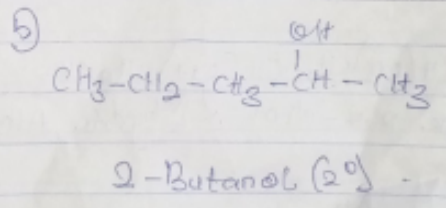 5)
OH
CH3-CH2-CH3-CH-CH3
2-Butanol (2°) .